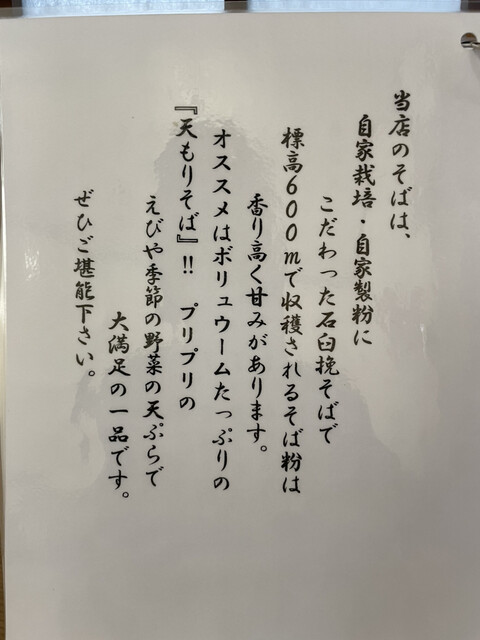 当店のそばは、
自家栽培・自家製粉に
こだわった石臼挽そばで
標高600mで収穫されるそば粉は
香り高く甘みがあります。
オススメはボリュウームたっぷりの
『天もりそば』!! プリプリの
えびや季節の野菜の天ぷらで
大満足の一品です。
ぜひご堪能下さい。